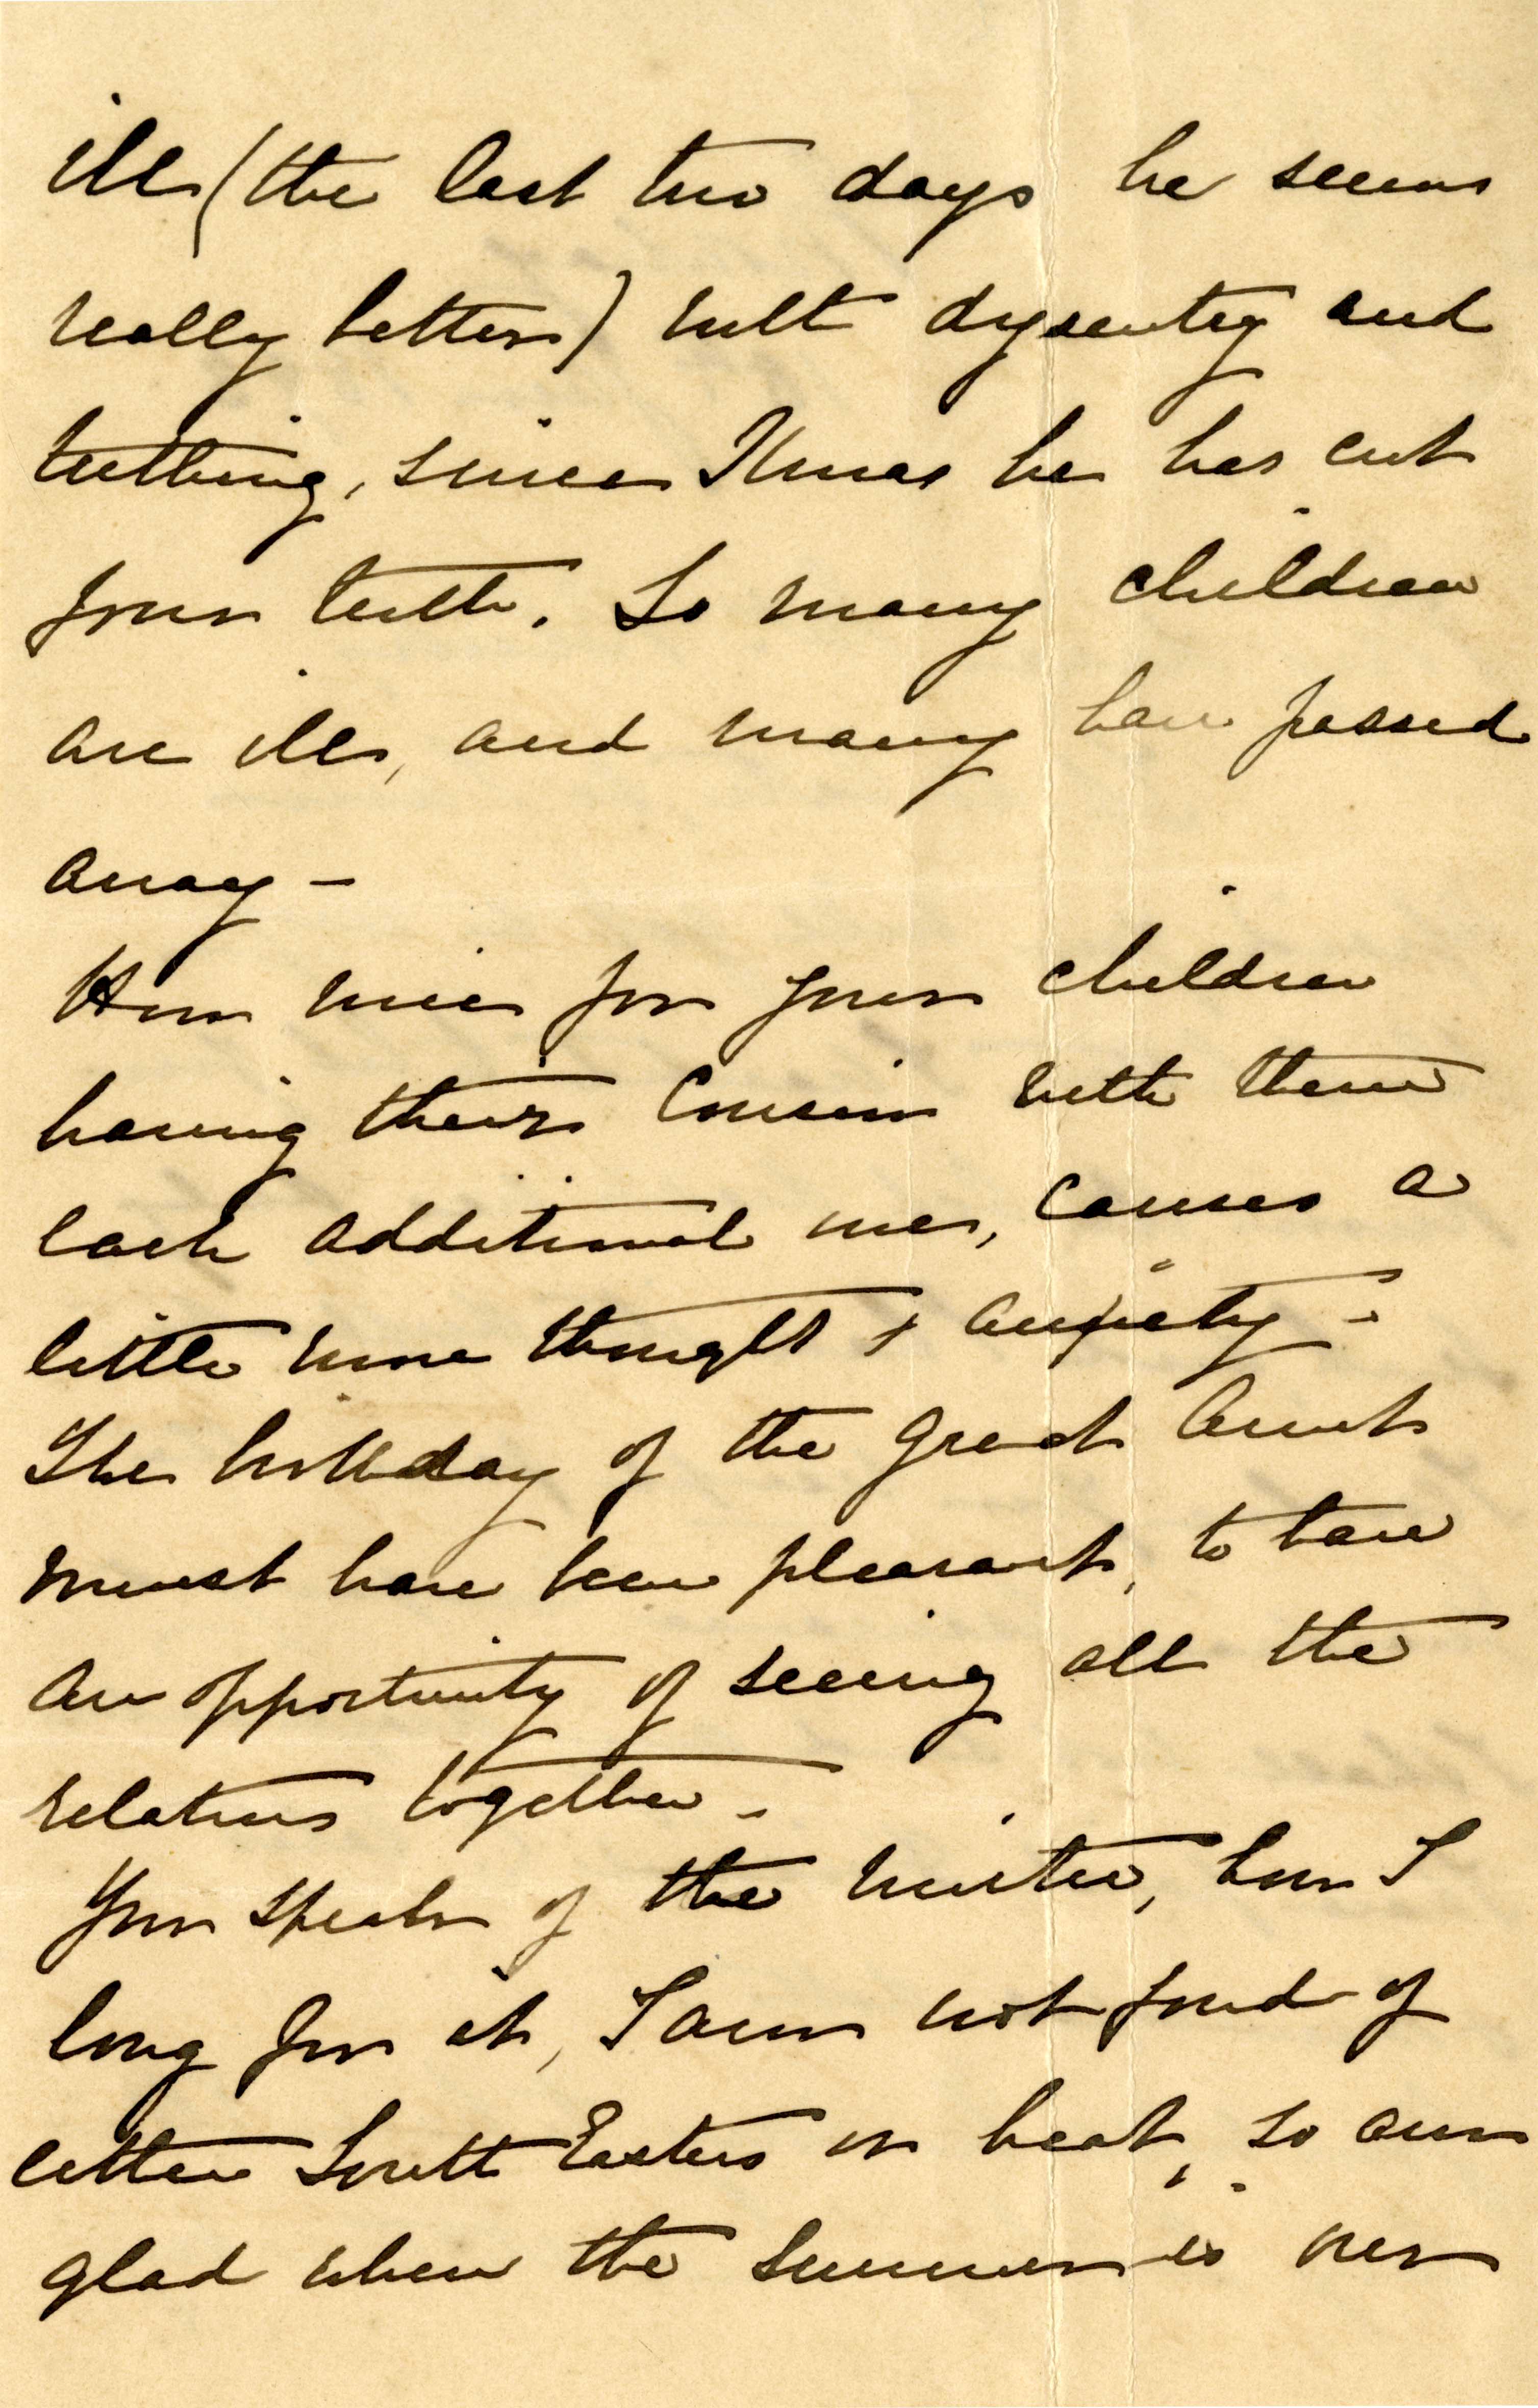 ill (the last two days he seems
really better) with dysentry and
teething, since Xmas he has cut
four teeth. So many children
are ill, and many have passed
away -
How nice for your children
having their Cousin with them
each additional one, causes a
little more thought & anxiety -
The holiday of the Great Aunt
must have been pleasant, to have
an opportunity of seeing all the
relations together -
You speak of the winter, how I
long for it, I am not fond of
either South Easters or heat, so am
glad when the summer is over